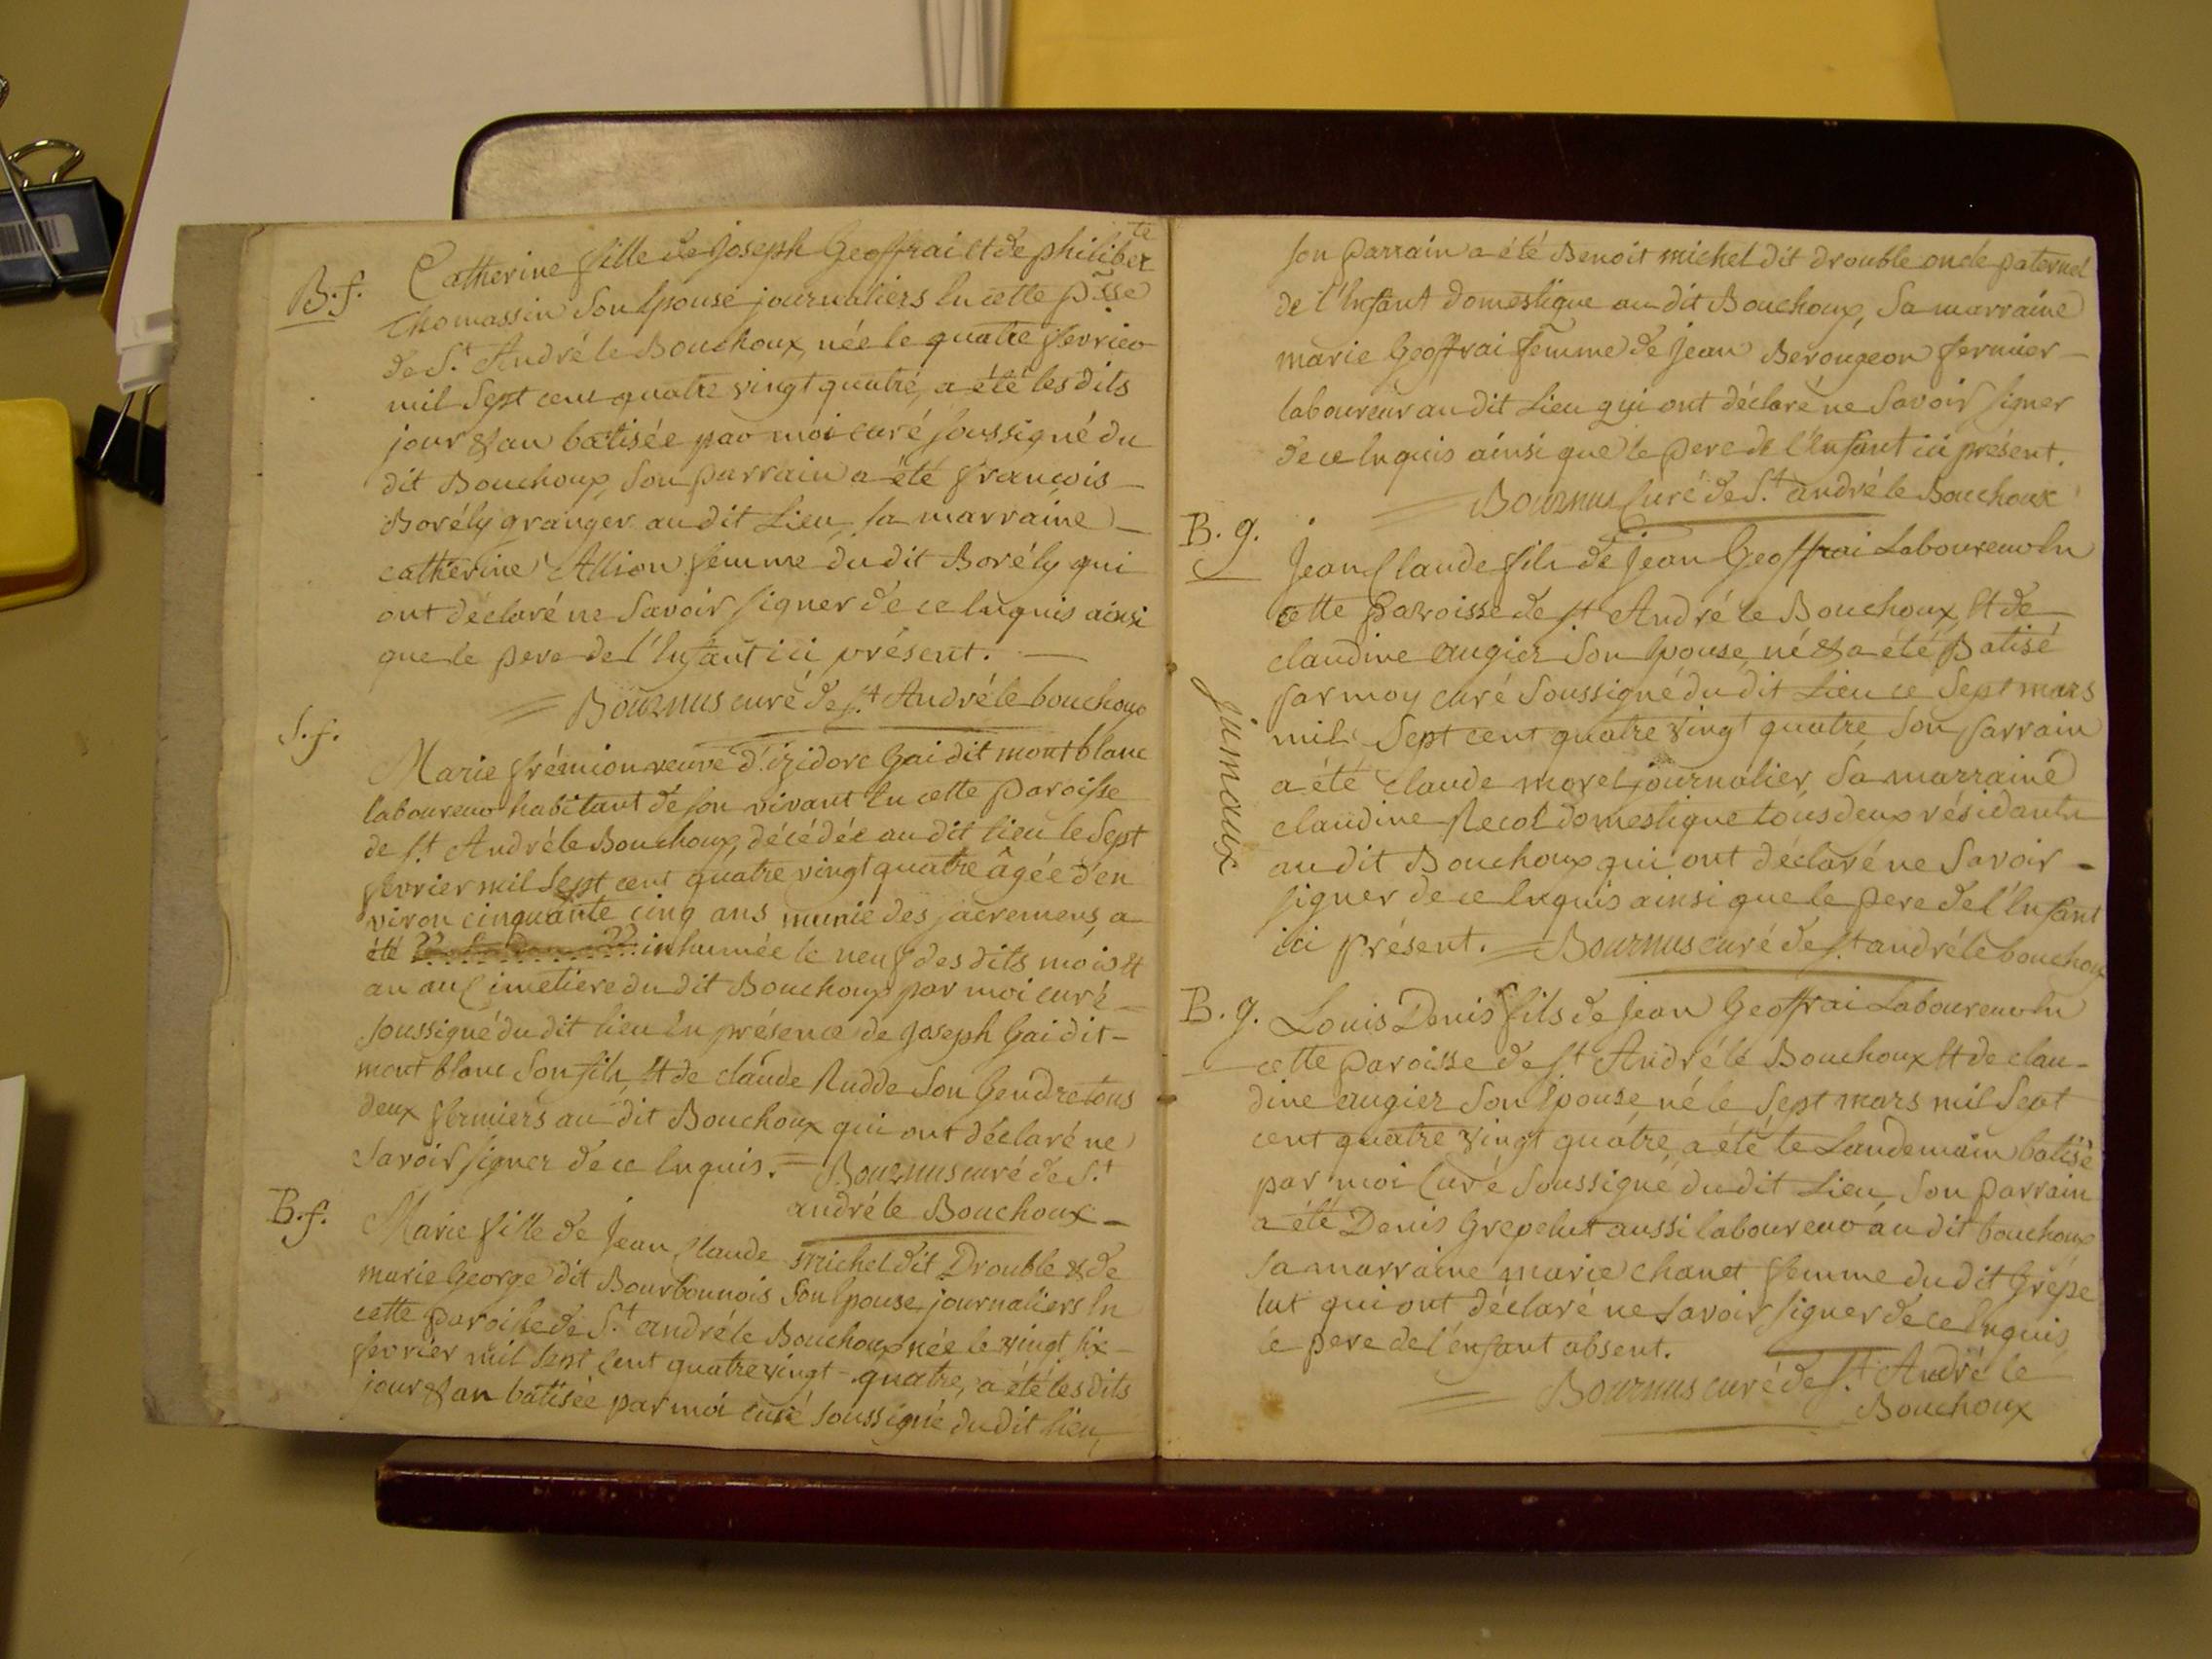 B.f. Catherine fille de Joseph Geoffrai et de philiberte
Thomassin Son Epouse journaliers En cette psse
de St. André le Bouchoux, née le quatre fevrier
mil Sept cent quatre vingt quatre, a été les dits
jour & an batisée par moi curé soussigné du
dit Bouchoux, Son parrain a été françois
Borély granger au dit Lieu, sa marraine
catherine Allion femme du dit Borély qui
ont déclaré ne Savoir signer de ce Enquis ainsi
que le pere de l'Enfant ici présent.
= Bournus curé de st André le bouchoux
S.f. Marie frémion veuve d'izidore Gai dit montblanc
laboureur habitant de son vivant En cette paroisse
de st André le Bouchoux, décédée au dit lieu le Sept
fevrier mil Sept cent quatre vingt quatre âgée d'en
viron cinquante cinq ans munie des sacremens, a
été inhumée le neuf des dits mois et
an au Cimetiere du dit Bouchoux par moi curé
soussigné du dit lieu En présence de Joseph Gai dit
mont blanc Son fils, et de claude Rudde Son Gendre tous
deux fermiers au dit Bouchoux qui ont déclaré ne
Savoir signer de ce Enquis. = Bournus curé de St
andré le Bouchoux
B.f. Marie fille de Jean Claude michel dit Drouble & de
marie George dit Bourbonnois Son Epouse journaliers En
cette paroisse de St andré le Bouchoux née le vingt six
fevrier mil Sept Cent quatre vingt - quatre, a été les dits
jour & an batisée par moi curé soussigné du dit lieu,
son parrain a été Benoit michel dit drouble oncle paternel
de l'Enfant domestique au dit Bouchoux, Sa marraine
marie Geoffrai femme de Jean Berougeon fermier
laboureur au dit Lieu qui ont déclaré ne Savoir signer
de ce Enquis ainsi que le pere de l'Enfant ici présent.
= Bournus Curé de St andré le Bouchoux
B. g. Jean Claude fils de Jean Geoffrai Laboureur En
cette paroisse de st André le Bouchoux, et de
claudine augier Son Epouse, né & a été Batisé
par moy curé Soussigné du dit Lieu ce Sept mars
mil Sept cent quatre vingt quatre, Son parrain
a été claude morel journalier, Sa marraine
claudine Recol domestique tous deux résidants
au dit Bouchoux qui ont déclaré ne Savoir
signer de ce Enquis ainsi que le pere de l'Enfant
ici présent. = Bournus curé de st andré le bouchoux
jumaux
B. g. Louis Denis fils de Jean Geoffrai Laboureur En
cette paroisse de st André le Bouchoux et de clau-
dine augier Son Epouse, né le Sept mars mil Sept
cent quatre vingt quatre, a été le Landemain batisé
par moi Curé Soussigné du dit Lieu, Son parrain
a été Denis Grepelut aussi laboureur au dit bouchoux
sa marraine marie chanet femme du dit Grépe
lut qui ont déclaré ne Savoir signer de ce Enquis
le pere de l'enfant absent.
= Bournus curé de st André le
Bouchoux